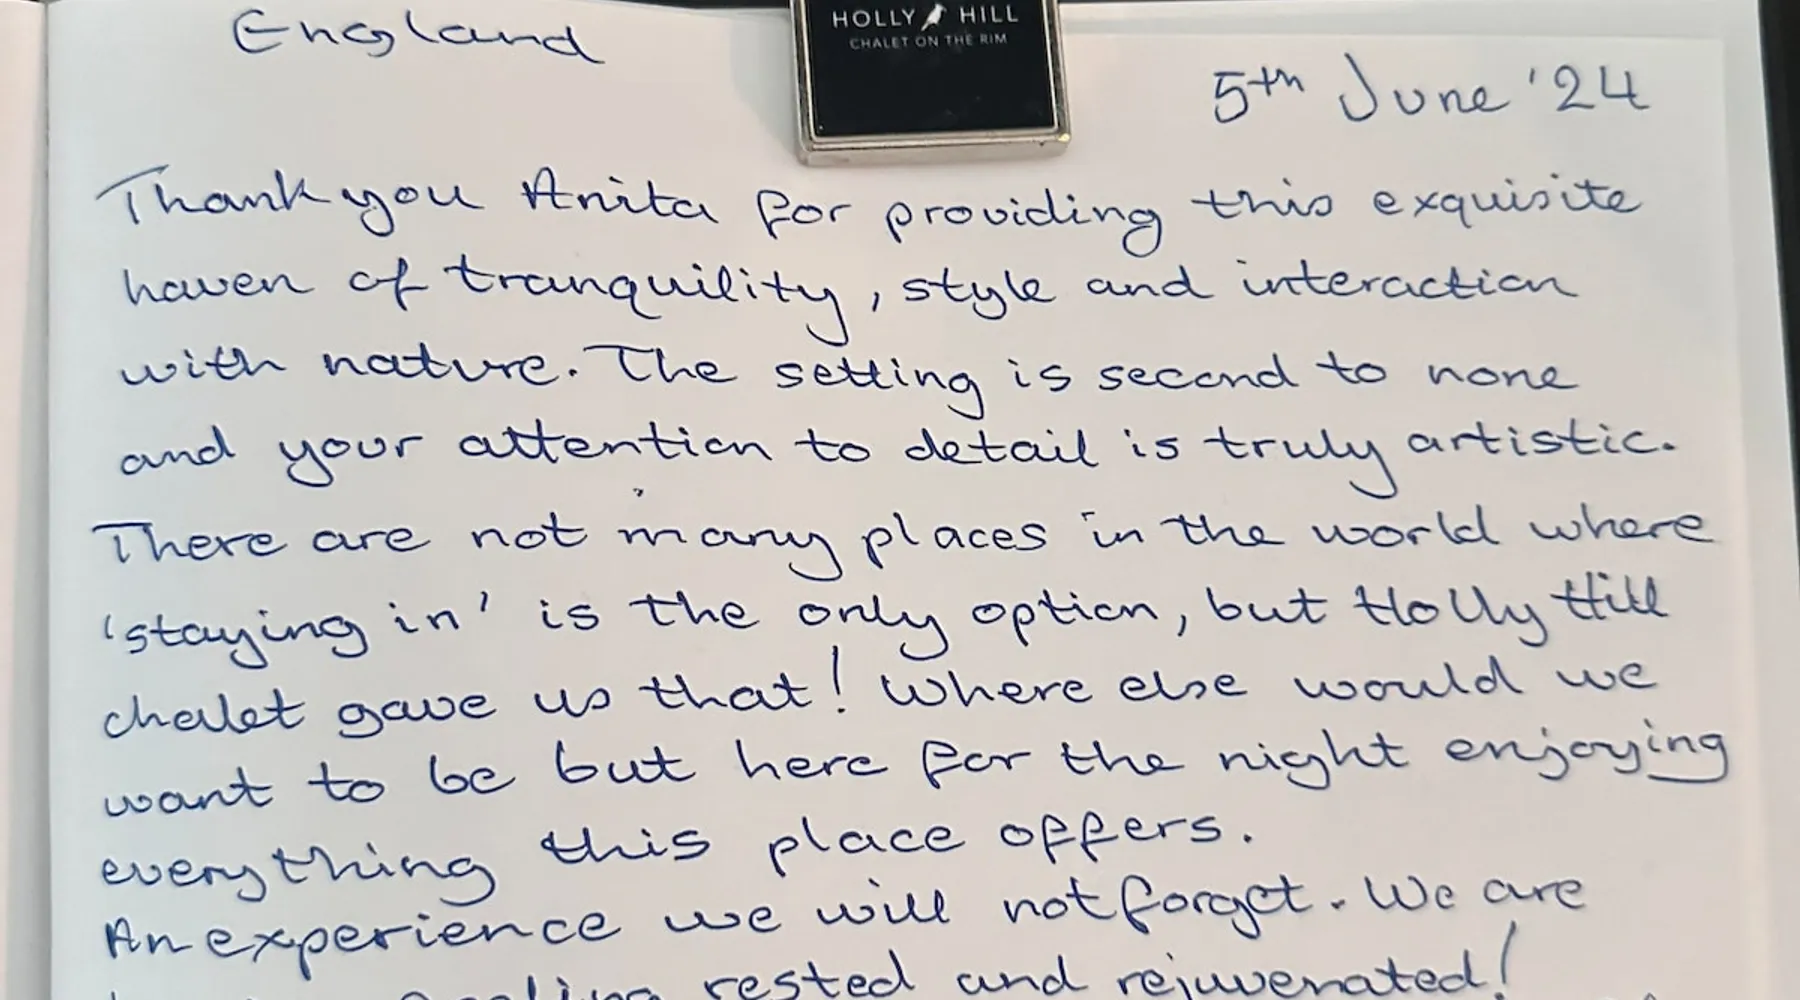 England
HOLLY HILL
CHALET ON THE RIM
5th June '24
Thank you Anita for providing this exquisite
haven of tranquility, style and interaction
with nature. The setting is second to none
and your attention to detail is truly artistic.
There are not many places in the world where
'staying in' is the only option, but Holly Hill
chalet gave us that! Where else would we
want to be but here for the night enjoying
everything this place offers.
An experience we will not forget. We are
feeling rested and rejuvenated!